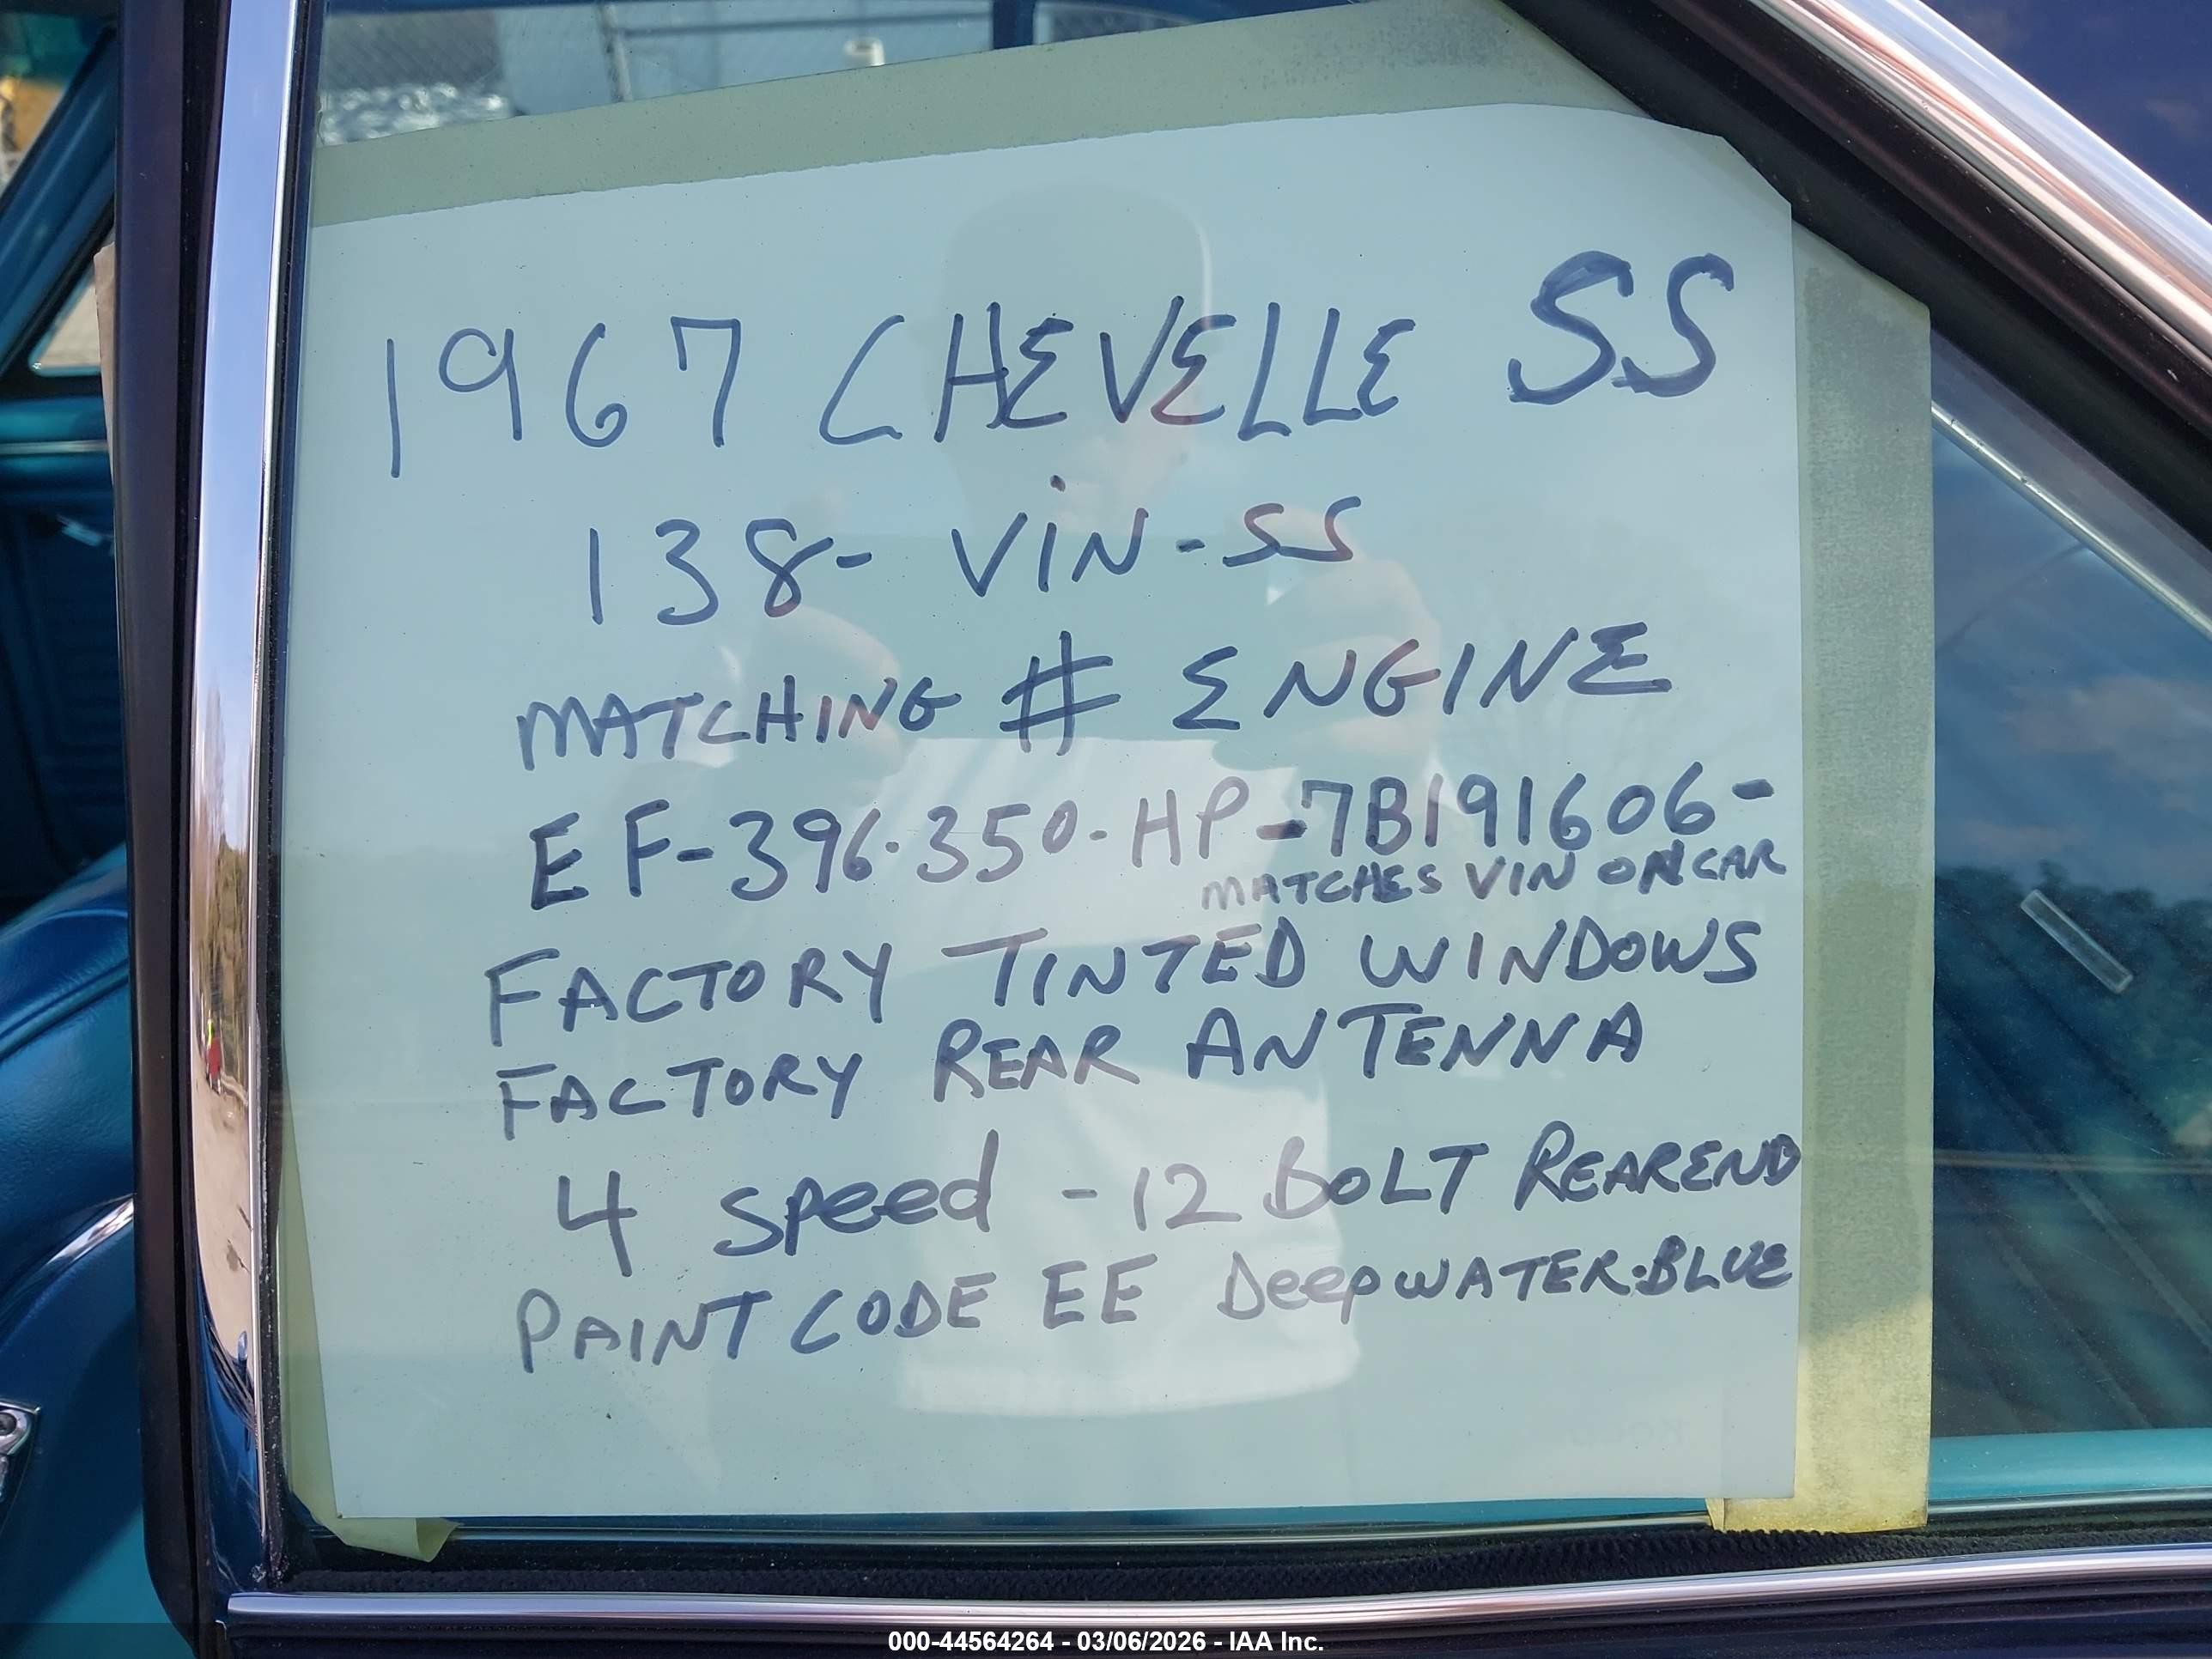 1967 CHEVELLE SS
138- ViN -SS
MATCHING # ENGINE
EF-396.350-HP-7B191606-
MATCHES VIN ON CAR
FACTORY TINTED WINDOWS
FACTORY REAR ANTENNA
4 Speed -12 BOLT REAREND
PAINT CODE EE DeepWATER.BLUE
000-44564264 - 03/06/2026 - IAA Inc.